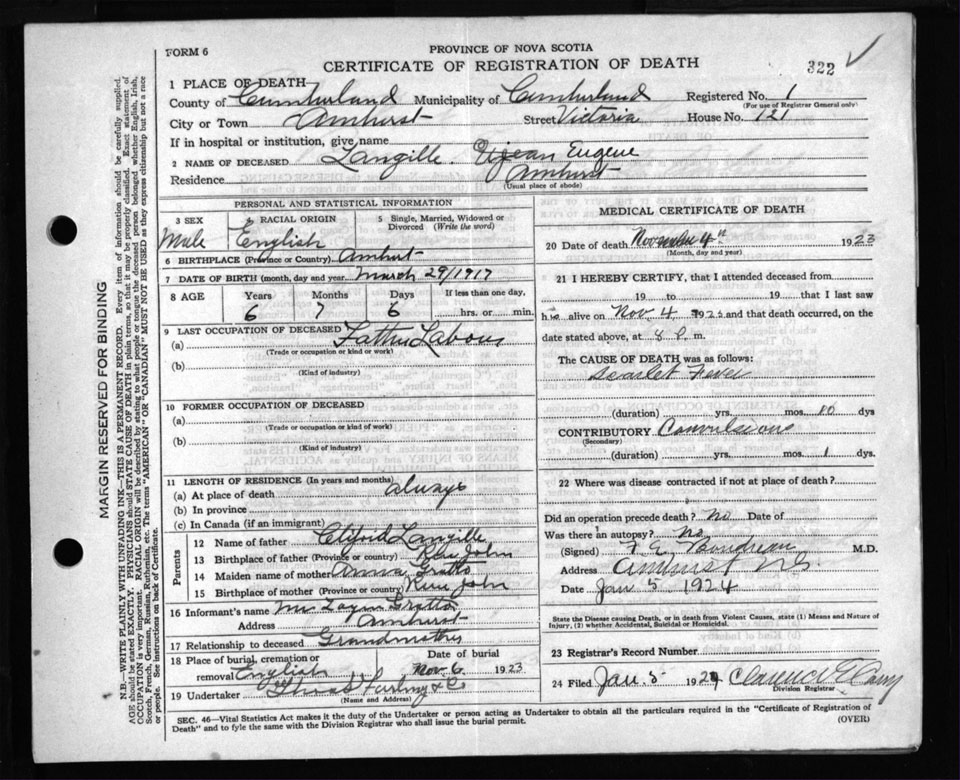 PROVINCE OF NOVA SCOTIA
FORM 6
CERTIFICATE OF REGISTRATION OF DEATH
322
1 PLACE OF DEATH
County of Cumberland Municipality of Cumberland Registered No. 1
(For use of Registrar General only)
City or Town Amherst Street Victoria House No. 121
If in hospital or institution, give name
2 NAME OF DECEASED Langille. Eugene
Residence Amherst
(Usual place of abode)
PERSONAL AND STATISTICAL INFORMATION
3 SEX Male
4 RACIAL ORIGIN English
5 Single, Married, Widowed or Divorced (Write the word)
6 BIRTHPLACE (Province or Country) Amherst
7 DATE OF BIRTH (month, day and year) March 29/1917
8 AGE Years Months Days If less than one day,
6 7 6 hrs. or min.
9 LAST OCCUPATION OF DECEASED
(a) Father Labour
(Trade or occupation or kind of work)
(b)
(Kind of industry)
10 FORMER OCCUPATION OF DECEASED
(a)
(Trade or occupation or kind of work)
(b)
(Kind of industry)
11 LENGTH OF RESIDENCE (In years and months)
(a) At place of death always
(b) In province
(c) In Canada (if an immigrant)
Parents
12 Name of father Clifford Langille
13 Birthplace of father (Province or country) River John
14 Maiden name of mother Anna Gratto
15 Birthplace of mother (Province or country) River John
16 Informant's name Mrs Gratto
Address Amherst
17 Relationship to deceased Grandmother
18 Place of burial, cremation or removal English
Date of burial Nov. 6 1923
19 Undertaker & Co
(Name and Address)
MEDICAL CERTIFICATE OF DEATH
20 Date of death November 4th 1923
(Month, day and year)
21 I HEREBY CERTIFY, that I attended deceased from
19 to 19 that I last saw
h alive on Nov 4 1923 and that death occurred, on
date stated above, at 8 P. m.
The CAUSE OF DEATH was as follows:
Scarlet Fever
(duration) yrs. mos. 10 dys
CONTRIBUTORY Convulsions
(Secondary)
(duration) yrs. mos. 1 dys.
22 Where was disease contracted if not at place of death?
Did an operation precede death? No Date of
Was there an autopsy? No
(Signed) Boudreau M.D.
Address Amherst N.S.
Date Jan 5 1924
State the Disease causing Death, or in death from Violent Causes, state (1) Means and Nature of Injury, (2) whether Accidental, Suicidal or Homicidal.
23 Registrar's Record Number
24 Filed Jan. 5 1924 Clarence
Division Registrar
SEC. 46—Vital Statistics Act makes it the duty of the Undertaker or person acting as Undertaker to obtain all the particulars required in the "Certificate of Registration of
Death" and to fyle the same with the Division Registrar who shall issue the burial permit.
(OVER)
MARGIN RESERVED FOR BINDING
N.B.—WRITE PLAINLY WITH UNFADING INK—THIS IS A PERMANENT RECORD. Every item of information should be carefully supplied.
AGE should be stated EXACTLY. PHYSICIANS should STATE CAUSE OF DEATH in plain terms, so that it may be properly classified. Exact statement of
OCCUPATION is very important. RACIAL ORIGIN will be described by stating to what people or tongue the deceased person belonged whether English, Irish,
Scotch, French, German, Russian, Ruthenian, etc. The terms "AMERICAN" or "CANADIAN" MUST NOT BE USED as they express citizenship but not a race
or people. See instructions on back of Certificate.